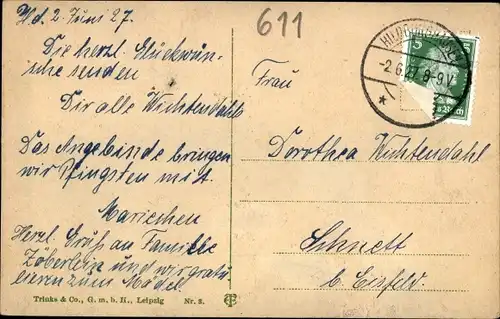 d. 2. Juni 27.
Die herzl. Glückwün-
sche senden
Dir alle Wichtendahls
Das Angebinde bringen
wir Pfingsten mit.
Mariechen
Herzl. Gruß an Familie
Zöberlein und wir gratu
lieren zum Mädel.
Trinks & Co., G. m. b. H., Leipzig Nr. 2.
611
-2.6.27. 8-9 V.
5
Frau
Dorothea Wichtendahl
Schnett
b. Eisfeld.